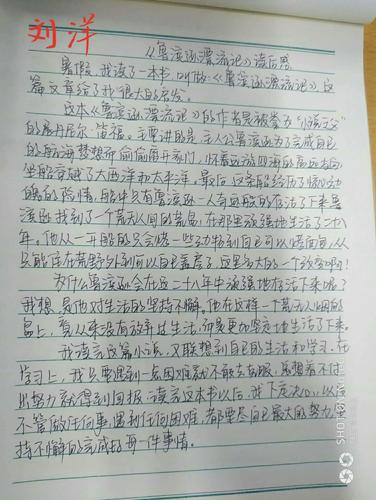 刘洋
《鲁滨逊漂流记》读后感
暑假,我读了一本书,叫做《鲁滨逊漂流记》,这
篇文章给了我很大的启发。
这本《鲁滨逊漂流记》的作者是被拳为"小说之父"
的展丹尼尔·笛福。主要讲的是主人公鲁滨逊为了完成自己
的航海梦想而偷偷离开家门,怀着远游四海的高远志向,
坐船穿越了大西洋和太平洋。最后,这条船经历了惊心动
魄的险情,船中只有鲁滨逊一人奇迹般的存活了下来鲁
滨逊找到了一个荒无人间的荒岛,在那里顽强地生活了二十八
年。他从一开始的只会烤一些动物到自己可以烤面包,从
只能住在荒野外到可以自己盖房子,这是多大的一个改变啊!
为什么鲁滨逊会在这二十八年中顽强地存活下来呢?
我想是他对生活的坚持不懈。他在这样一个荒无人烟的
岛上,看从来没有放弃过生活,而是更加坚定地生活了下来。
我读完这篇小说,又联想到自己的生活和学习。在
学习上,我只要遇到一点困难就不敢去克服,总想着不付
出努力就得到回报。读完这本书以后,我下定决心,以后
不管做任何事,遇到任何困难,都要尽自己最大的努力,坚
持不懈的完成好每一件事情。
SHOT ON